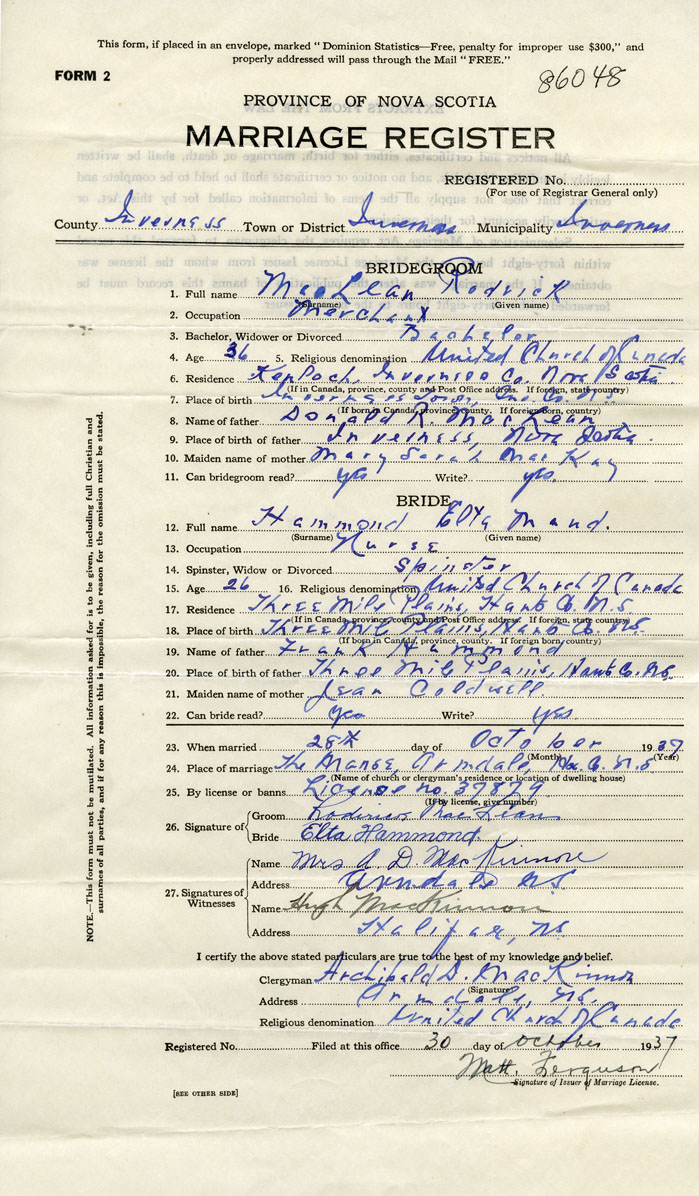 This form, if placed in an envelope, marked "Dominion Statistics—Free, penalty for improper use $300," and
properly addressed will pass through the Mail "FREE."
FORM 2
86048
PROVINCE OF NOVA SCOTIA
MARRIAGE REGISTER
REGISTERED No.
(For use of Registrar General only)
County Inverness Town or District Inverness Municipality Inverness
BRIDEGROOM
1. Full name MacLean Rodrick
(Surname) (Given name)
2. Occupation Merchant
3. Bachelor, Widower or Divorced Bachelor
4. Age 36 5. Religious denomination United Church of Canada
6. Residence Kenloch, Inverness Co. Nova Scotia
(If in Canada, province, county and Post Office address. If foreign, state country)
7. Place of birth Inverness Town, Inv. Co. N.S.
(If born in Canada, province, county. If foreign born, country)
8. Name of father Donald R. MacLean
9. Place of birth of father Inverness, Nova Scotia.
10. Maiden name of mother Mary Sarah MacKay
11. Can bridegroom read? yes Write? yes.
BRIDE
12. Full name Hammond Elta Maud.
(Surname) (Given name)
13. Occupation Nurse
14. Spinster, Widow or Divorced Spinster
15. Age 26 16. Religious denomination United Church of Canada
17. Residence Three Mile Plains, Hants Co. N.S
(If in Canada, province, county and Post Office address. If foreign, state country)
18. Place of birth Three Mile Plains, Hants Co. N.S.
(If born in Canada, province, county. If foreign born, country)
19. Name of father Frank Hammond
20. Place of birth of father Three Mile Plains, Hants Co. N.S.
21. Maiden name of mother Jean Coldwell
22. Can bride read? yes Write? yes.
23. When married 28th day of October 1937
(Month) (Year)
24. Place of marriage The Manse, Armdale, Hx. Co. N.S
(Name of church or clergyman's residence or location of dwelling house)
25. By license or banns License no. 37879
(If by license, give number)
26. Signature of
Groom Roderick MacLean
Bride Elta Hammond.
27. Signatures of Witnesses
Name Mrs A. D. MacKinnon
Address Armdale N.S.
Name Hugh MacKinnon
Address Halifax, N.S
I certify the above stated particulars are true to the best of my knowledge and belief.
Clergyman Archibald D. MacKinnon
(Signature)
Address Armdale, N.S.
Religious denomination United Church of Canada
Registered No. Filed at this office 30 day of October 1937
Matt. Ferguson
Signature of Issuer of Marriage License.
[SEE OTHER SIDE]
NOTE.—This form must not be mutilated. All information asked for is to be given, including full Christian and
surnames of all parties, and if for any reason this is impossible, the reason for the omission must be stated.